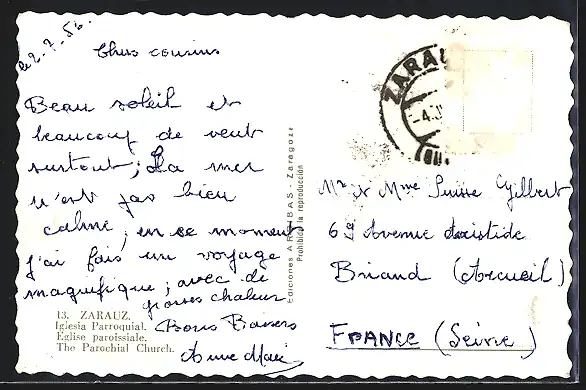 le 2-7-56
Chers cousins
Beau soleil et
beaucoup de vent
surtout; La mer
n'est pas bien
calme, en ce moment
j'ai fais un voyage
magnifique; avec de
grosses chaleur
Bons Baisers
Anne Marie
13. ZARAUZ.
Iglesia Parroquial.
Eglise paroissiale.
The Parochial Church.
Ediciones ARRIBAS - Zaragoza
Prohibida la reproducción
ZARAU
-4.J
(GU
Mr et Mme Gilbert
69 Avenue Aristide
Briand (Arcueil)
FRANCE (Seine)